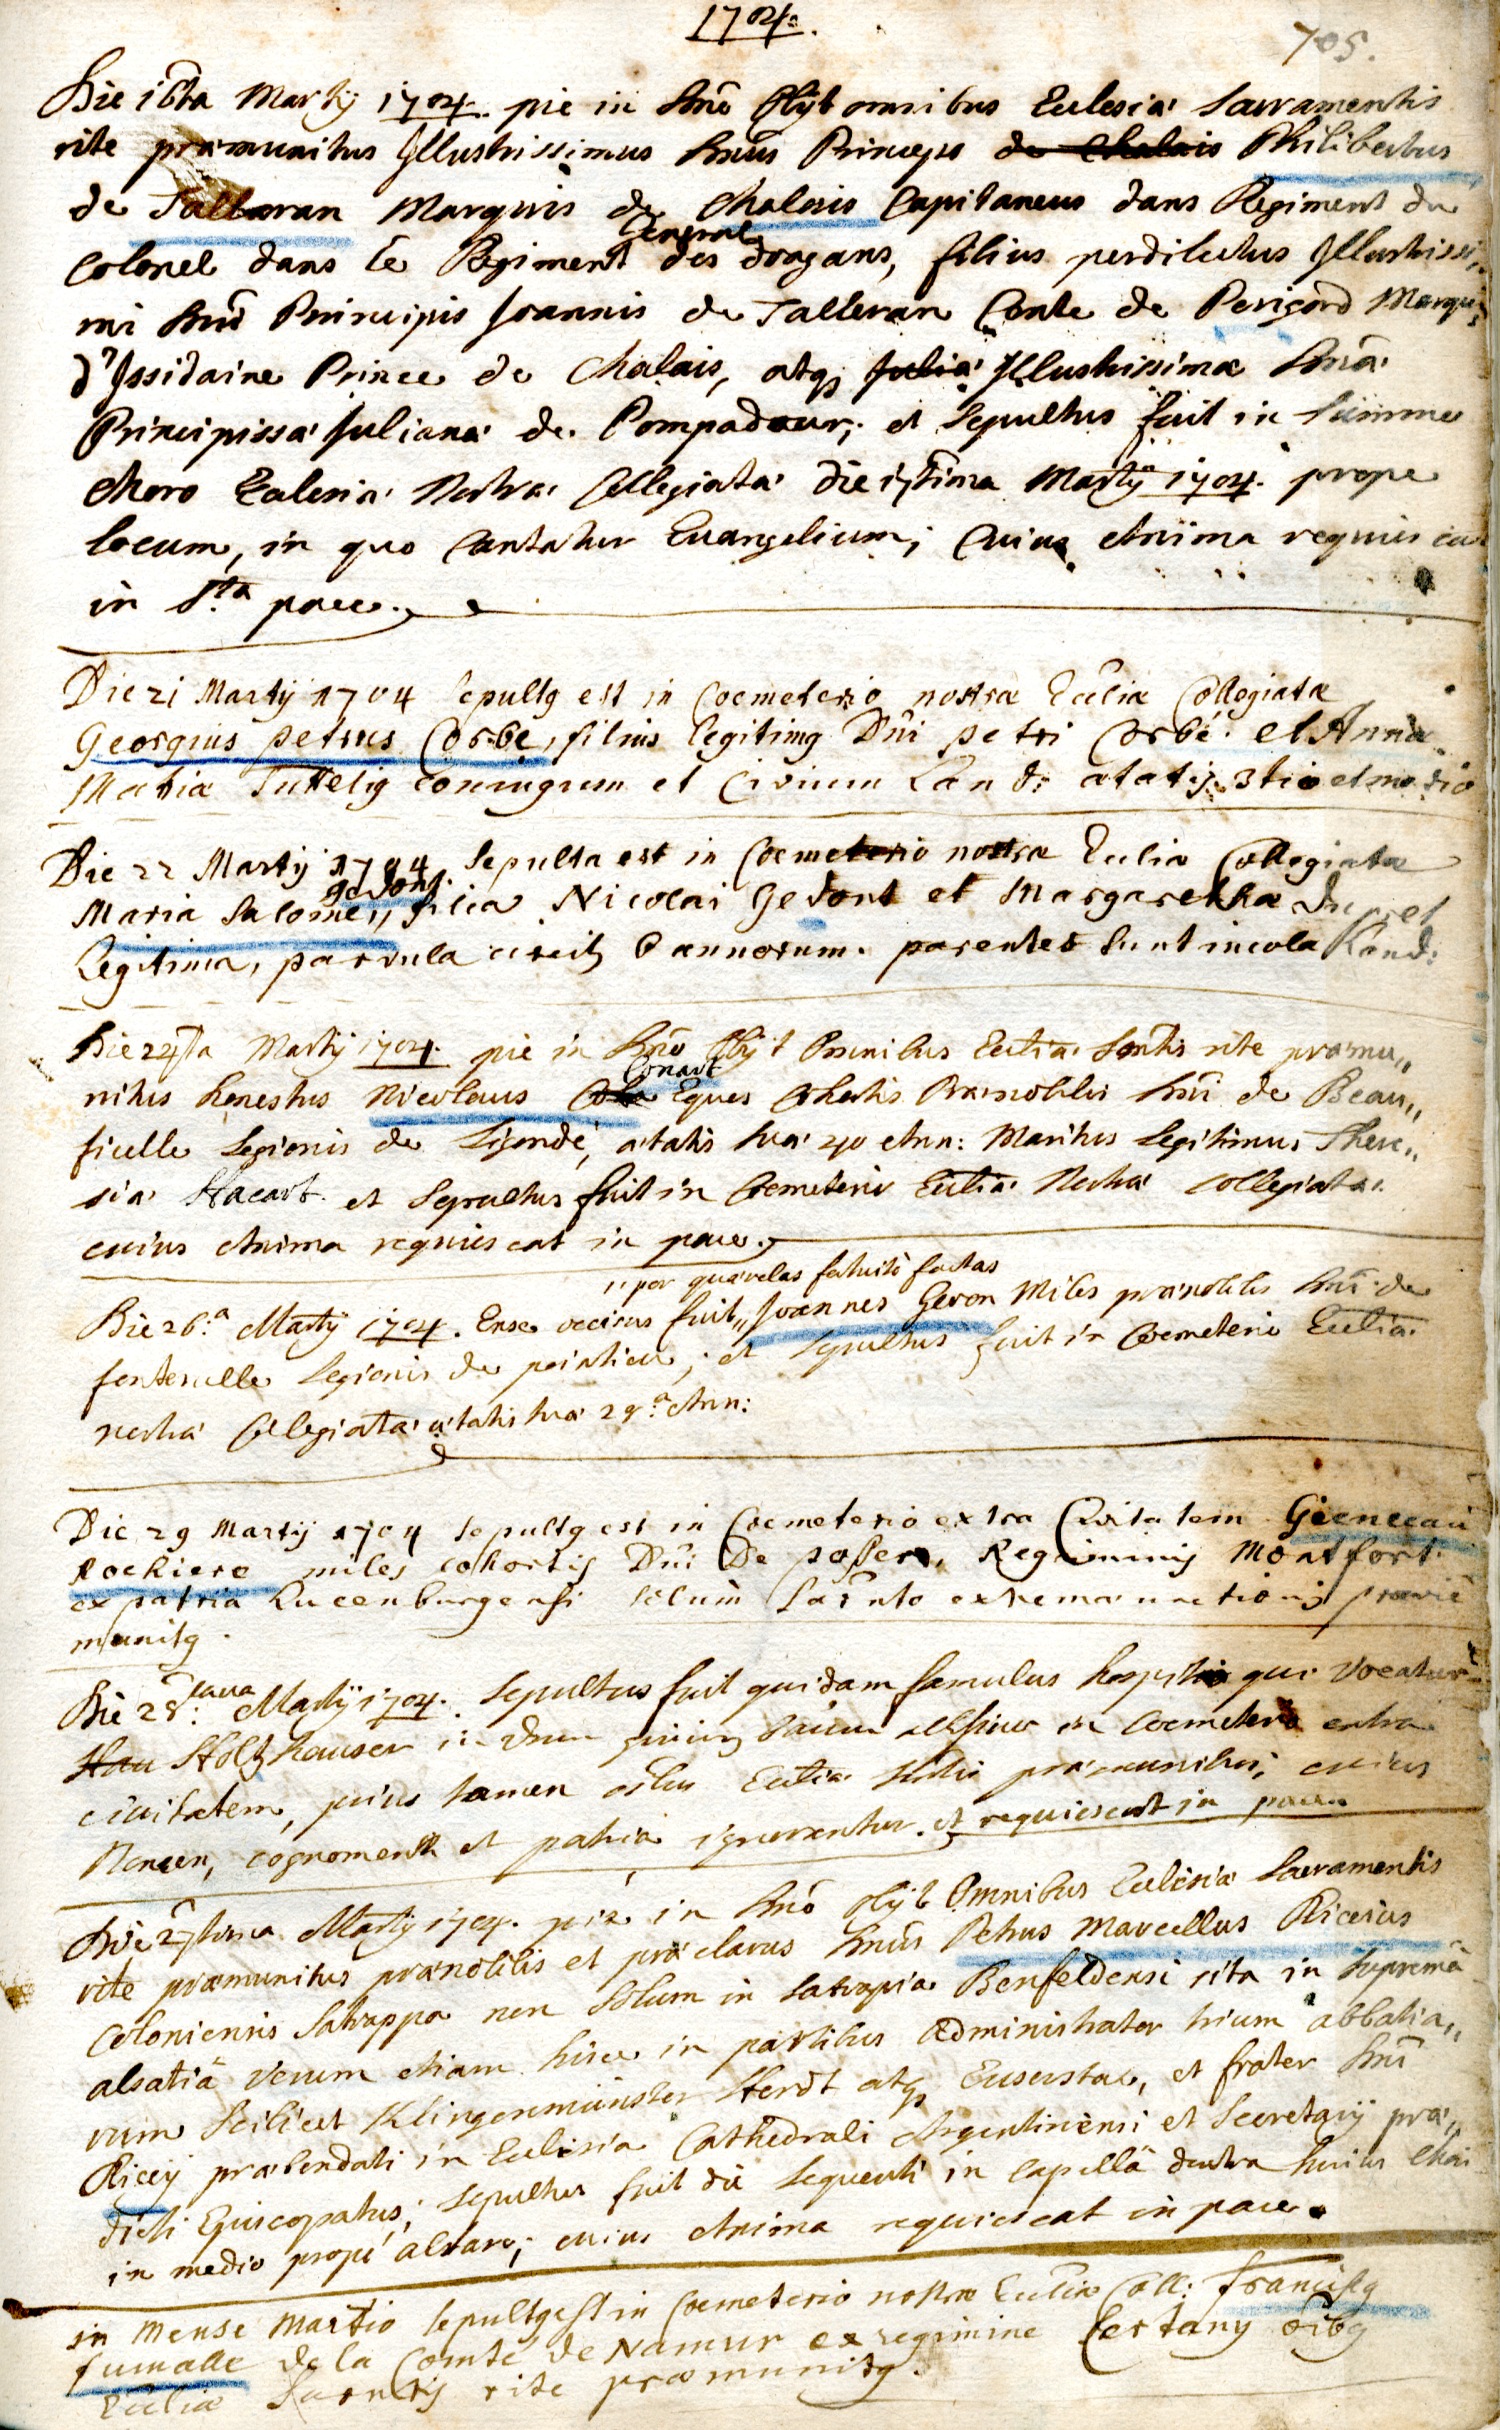 1704.
705.
Die 16ta Martij 1704. pie in Dno Obijt omnibus Ecclesiæ Sacramentis
rite præmunitus Illustrissimus Dnus Princeps de Chalais Philibertus
de Talleran Marquis de Chalais Capitaneus dans Regiment du
General
Colonel dans le Regiment des dragans, filius perdilectus Illustrissi
mi Dni Principis Joannis de Talleran Conte de Perigord Marquis
d'Issidaine Prince de Chalais, atq; Julia Illustrissimæ Dnæ
Principissæ Julianæ de Pompadour; et Sepultus fuit in Summo
choro Ecclesiæ Nostræ Collegiatæ die 17tima Martij 1704. prope
locum, in quo Cantatur Euangelium; Cuius Anima requiescat
in Sta pace.
Die 21 Martij 1704 sepultg est in Coemeterio nostræ Eccliæ Collegiatæ
Georgius petrus Corbe, filius legitimg Dni petri Corbé et Anna
Maria Tuttelig coniugum et Civium Land: ætatis 3tio et medio
Die 22 Martij 1704. Sepulta est in Coemeterio nostræ Eccliæ Collegiatæ
gedont.
Maria Salome,, filia Nicolai Gedont et Margaretha Dupret
Legitima, parvula circit 6 annorum. parentes sunt incolæ Land:
Die 24ta Martij 1704. pie in Dno Obijt Omnibus Eccliæ Smtis rite præmu,,
Conart
nitus honestus Nicolaus Eques Cohortis Prænobilis Dni de Beau,,
ficelle Legionis de Ligondé, ætatis suæ 40 Ann: Maritus Legitimus There,,
siæ Hacart. et Sepultus fuit in Coemeterio Eccliæ Nostræ Collegiatæ.
cuius Anima requiescat in pace.
,, per quærelas fortuitò factas
Die 26.a Martij 1704. Ense occisus fuit,, Joannes Geron Miles prænobilis Dni de
fontenelle Legionis de poiatieu; et Sepultus fuit in Coemeterio Eccliæ
nostræ Collegiatæ ætatis suæ 29.a Ann:
Die 29 Martij 1704 sepultg est in Coemeterio extra Civitatem
Rochiere miles cohortis Dni De Regiminis Montfort
ex patria Lucenburgensi solum Sacrnto extremæ unctionis prævie
munitg.
Die 28: tava Martij 1704. Sepultus fuit quidam famulus hospitis qui vocatur
Hau Holtzhauser in Coemeterio extra
civitatem, prius tamen oibus Eccliæ præmunitus; cuius
Nomen, cognomen et patria ignorantur. et requiescat in pace.
Die 27tima Martij 1704. pie in Dno Obijt Omnibus Ecclesiæ Sacramentis
rite præmunitus prænobilis et præclarus Dnus Petrus Marcellus Riceius
Coloniensis Satrappa non Solum in Satrapia Benfeldensi sita in Suprema
alsatiâ verum etiam hisce in partibus Administrator trium abbatia,,
rum Scilicet Klingenmünster Herdt atq; Eusersthal, et frater Dni
Riceij præbendati in Ecclesia Cathedrali Argentinensi et Secretarij præ,,
dicti Episcopatus; Sepultus fuit die Sequenti in Capellâ dextra huius Chori
in medio propè altare; cuius Anima requiescat in pace.
in mense Martio sepultg est in Coemeterio nostræ Eccliæ Coll: francisg
fumalle de la Comté de Namur ex regimine oibg
Eccliæ Sacrntis rite præmunitg.